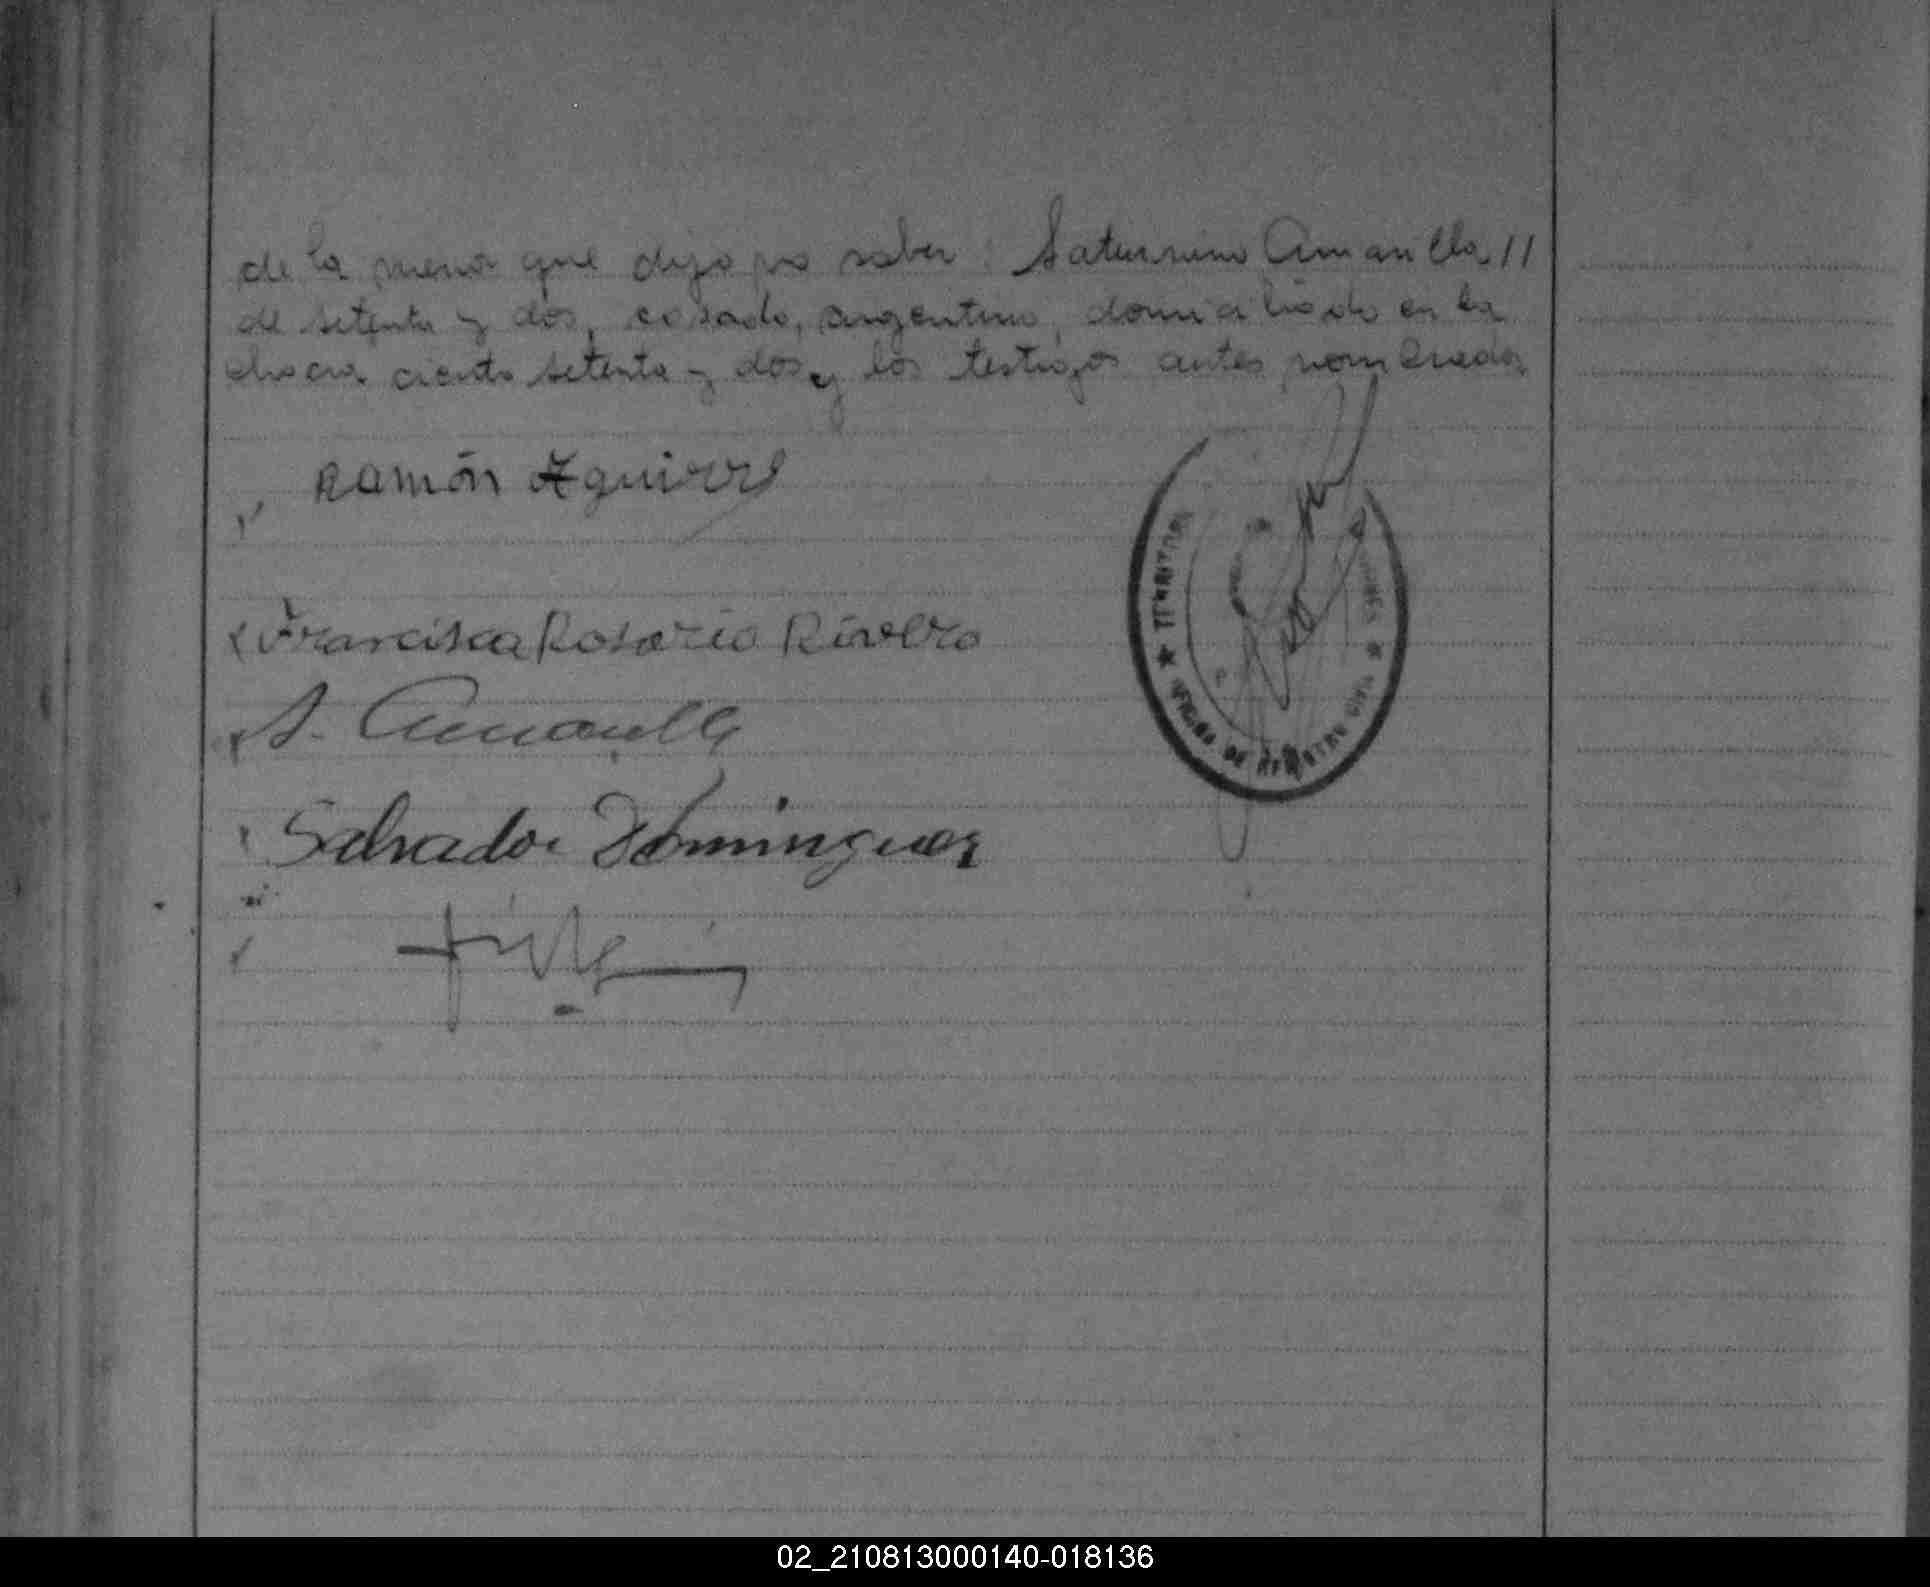 de la menor que dijo no saber: Saturnino Amarilla //
de setenta y dos, casado, argentino, domiciliado en la
chacra ciento setenta y dos y los testigos antes nombrados
Ramón Aguirre
Francisca Rosario Rivero
S. Amarilla
Salvador Dominguez
★ TERRITORI
★ OFICINA DE REGISTRO CIVIL
02_210813000140-018136